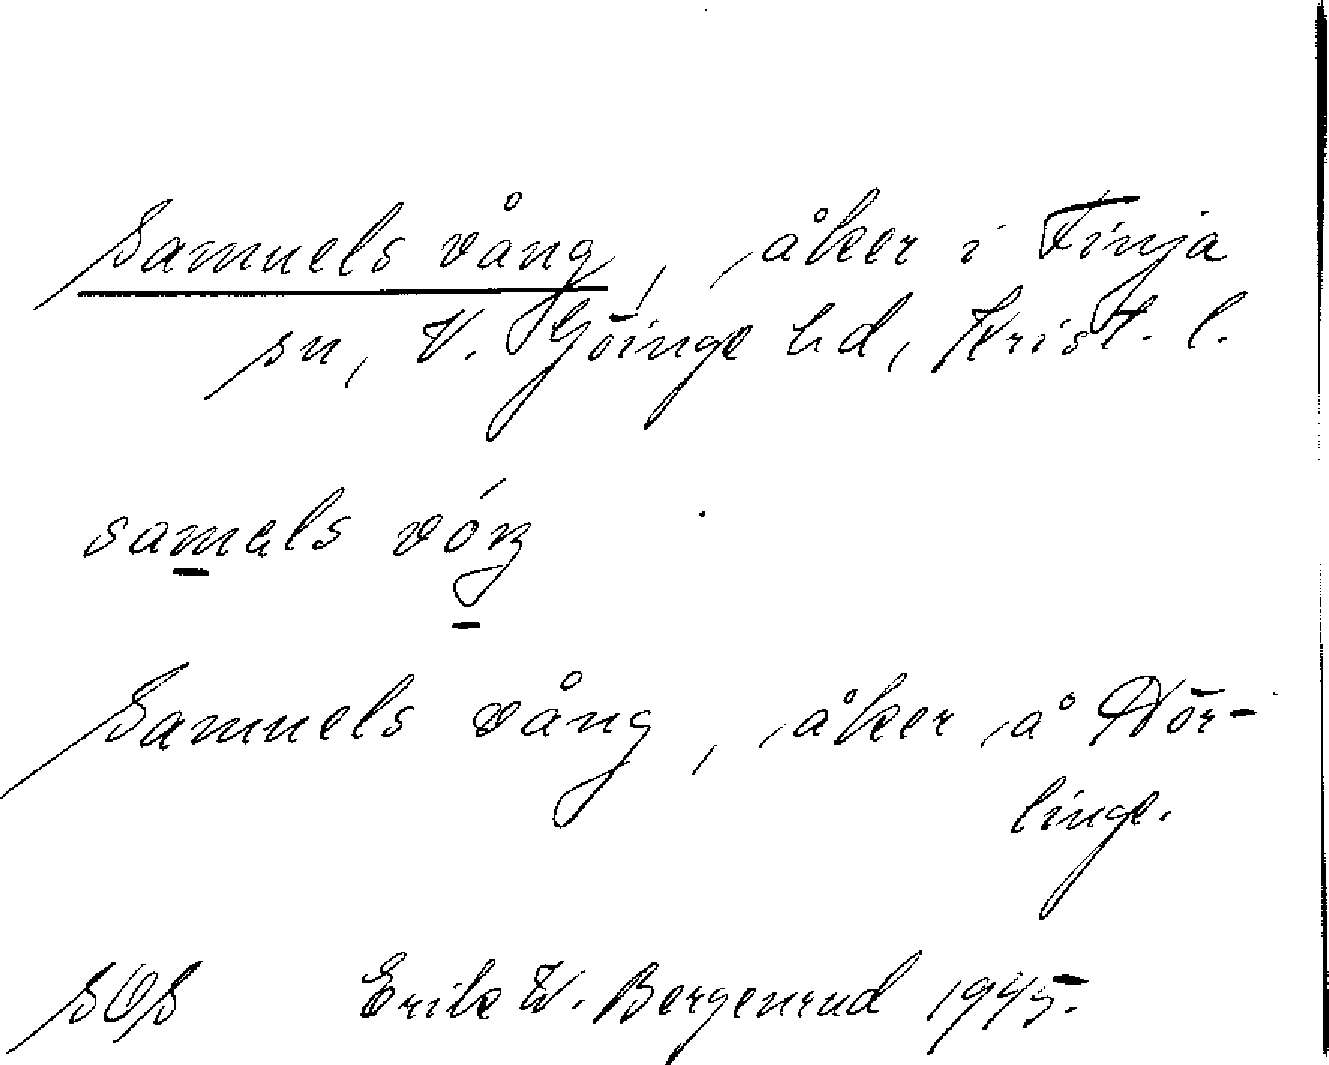 Samuels vång, åker i Finja
sn, V. Göinge hd, Krist. l.
samels vóŋ
Samuels vång, åker å Nör-
linge.
SOS Erik W. Bergenrud 1945.